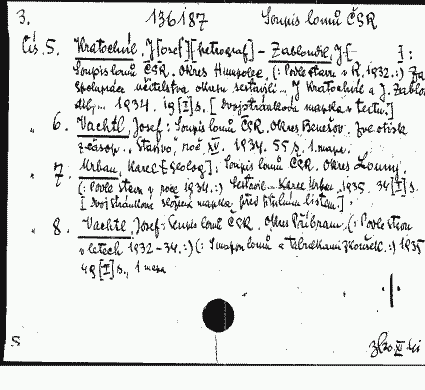 3. 136187 Soupis lomů ČSR
Čís. 5. Kratochvíl, J[osef][petrograf] – Zabloudil, J[- ]:
Soupis lomů ČSR. Okres Humpolec. (: Podle stavu v R. 1932.:) Za
spolupráce učitelstva okresu sestavili... J Kratochvíl a J. Zablou
dil, – 1934. 19[I]s. [Dvojstránková mapka v textu.]
„ 6. Vachtl, Josef: Soupis lomů ČSR. Okres Benešov. Zvl. otisk
z časop. „Stavivo, roč. XV. 1934. 55 s. 1 mapa.
„ 7. Urban, Karel [geolog]: Soupis lomů ČSR. Okres Louny.
(: Podle stavu v roce 1934.:) Sestavil – Karel Urban. 1935. 34[I]s.
[Dvojstránková složená mapka před titulním listem.]
„ 8. Vachtl, Josef: Soupis lomů ČSR. Okres Příbram. (: Podle stavu
v letech 1932–34.:) (: Seznam lomů a tabulkami zkoušek.:) 1935
49[I]s., 1 mapa
S